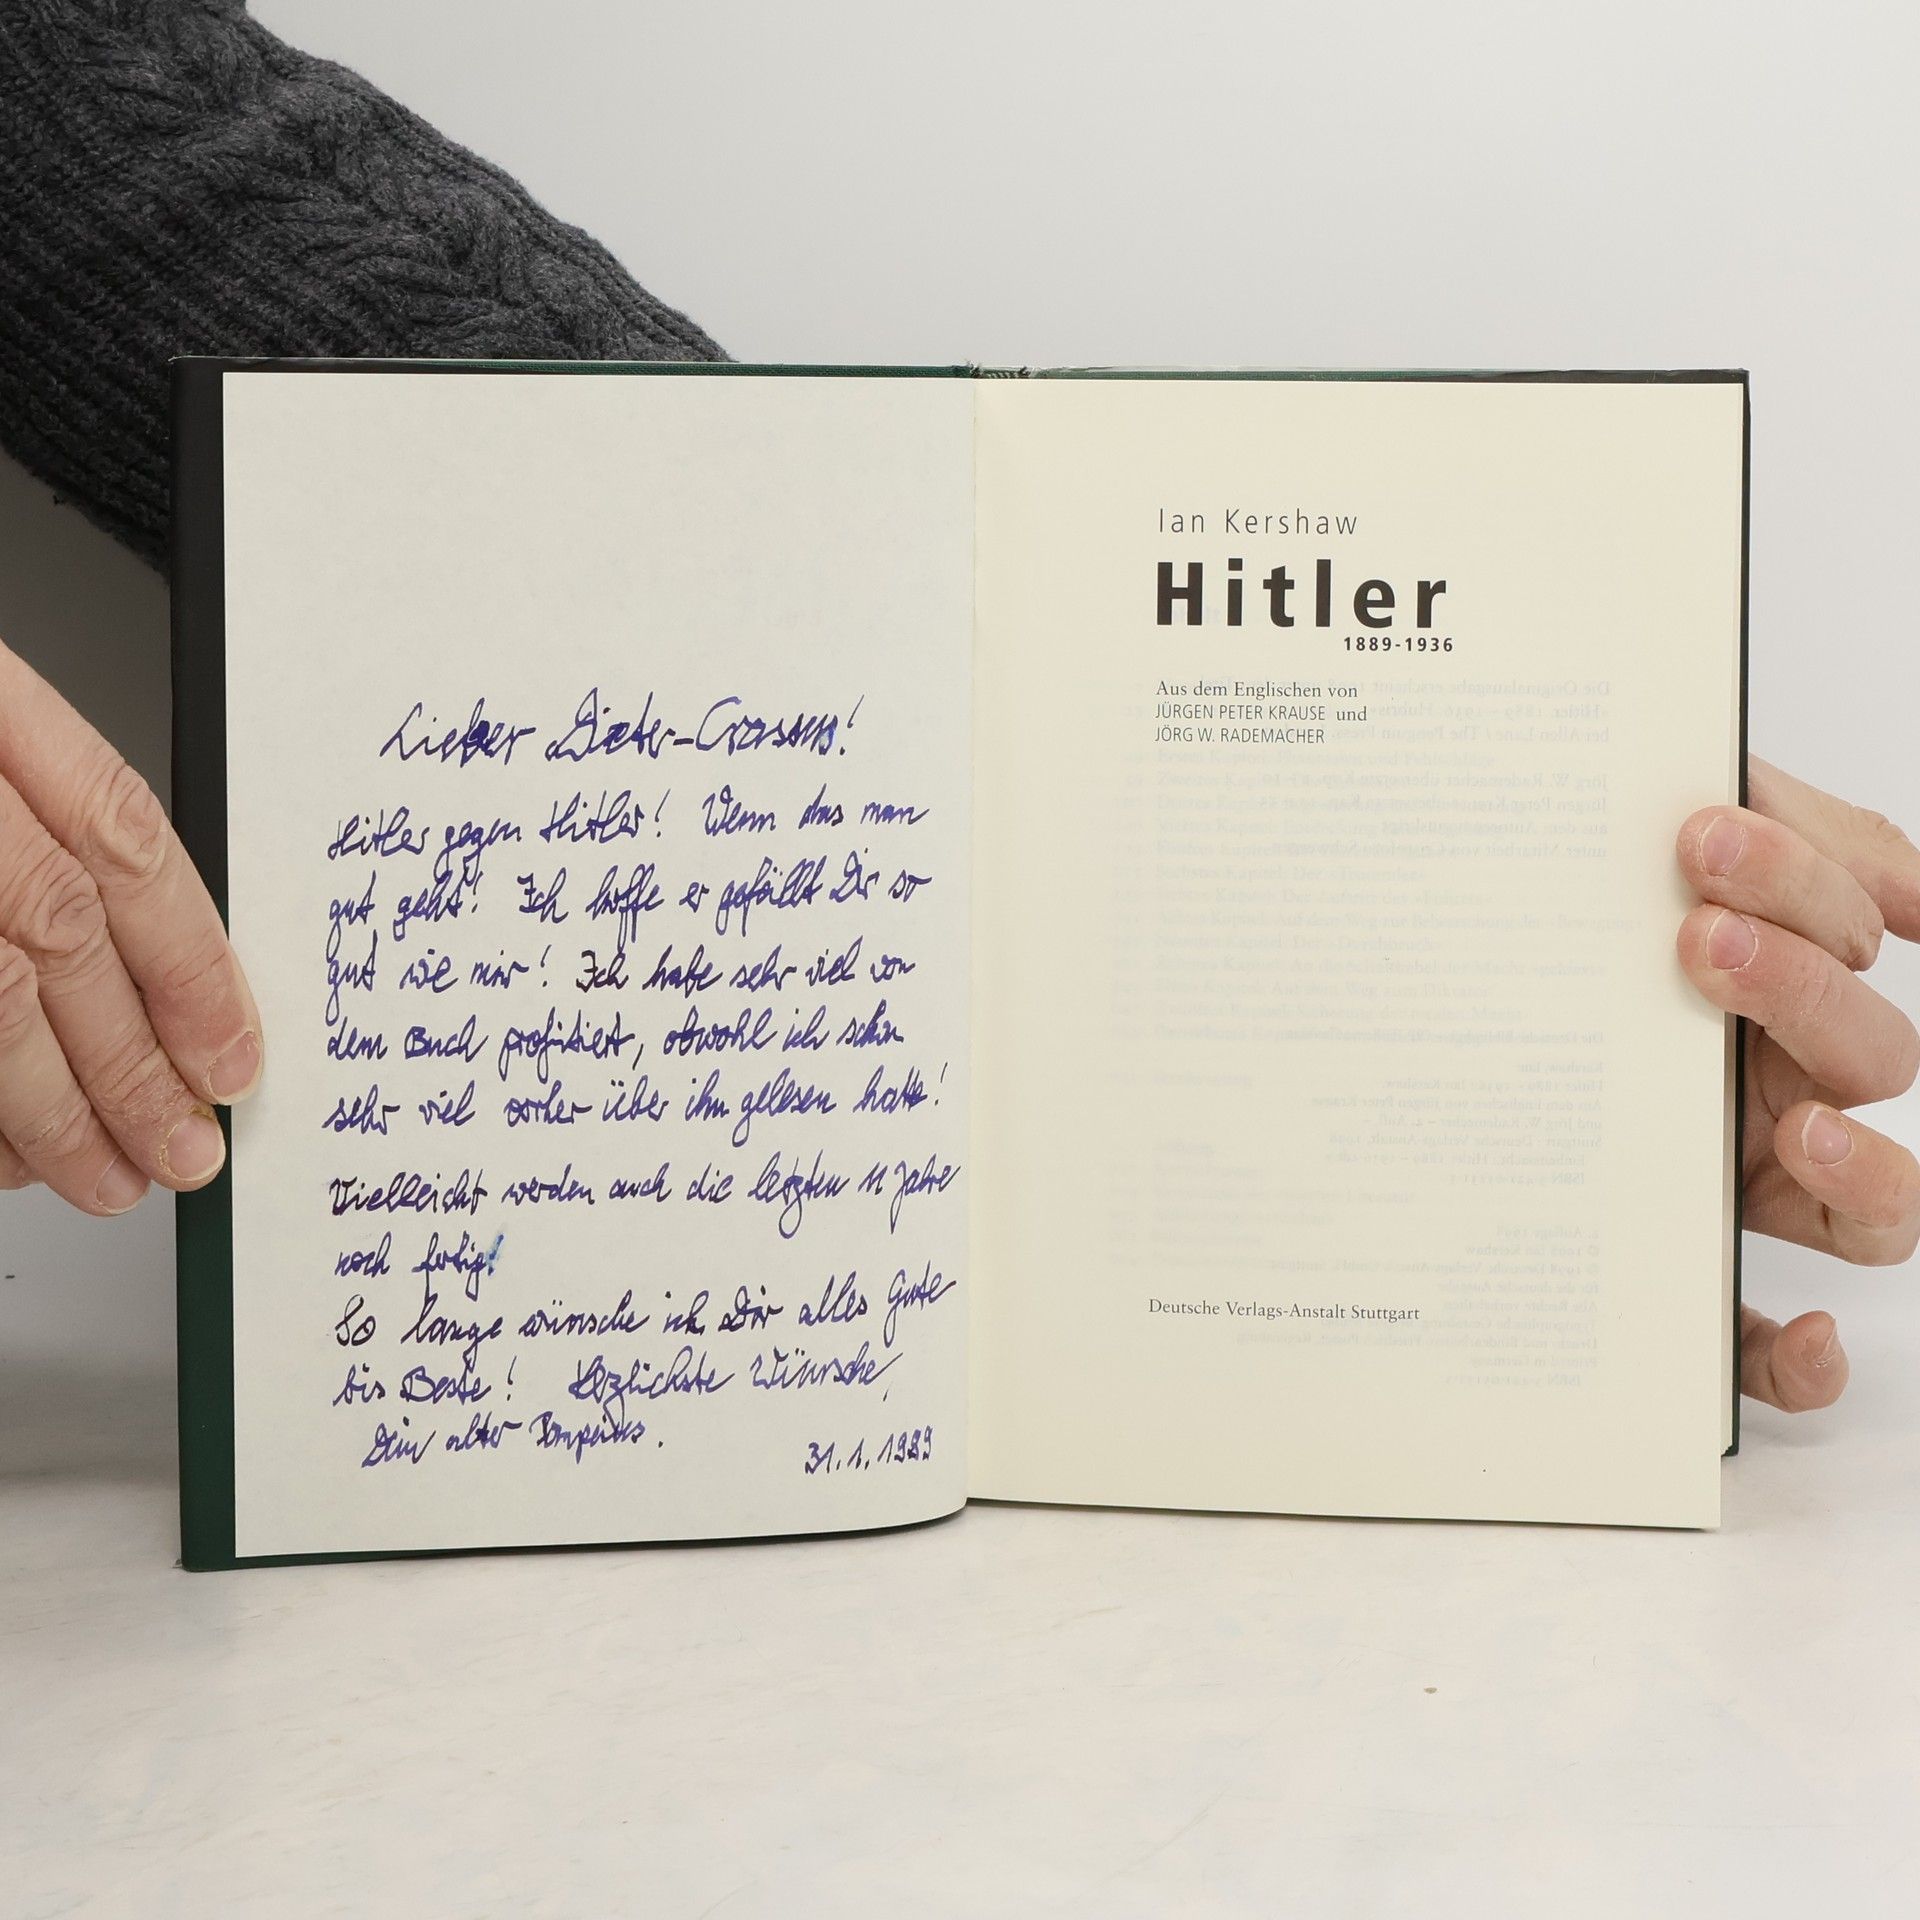 Lieber Dieter-Crassus!
Hitler gegen Hitler! Wenn das man
gut geht! Ich hoffe er gefällt Dir so
gut wie mir! Ich habe sehr viel von
dem Buch profitiert, obwohl ich schon
sehr viel vorher über ihn gelesen hatte!
Vielleicht werden auch die letzten 11 Jahre
noch fertig!
So lange wünsche ich Dir alles Gute
bis Beste! Herzlichste Wünsche,
Dein alter Pompeius.
31.1.1999
Ian Kershaw
Hitler
1889-1936
Aus dem Englischen von
JÜRGEN PETER KRAUSE und
JÖRG W. RADEMACHER
Deutsche Verlags-Anstalt Stuttgart